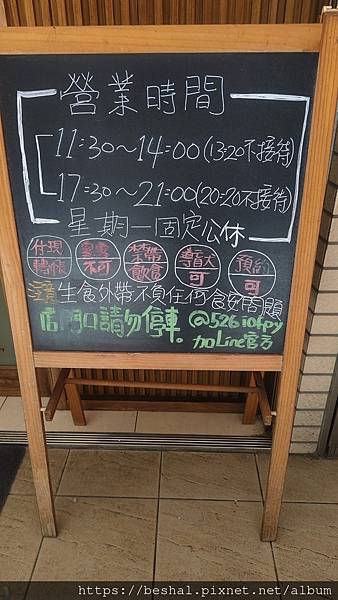 營業時間
11:30~14:00(13:20不接待)
17:30~21:00(20:20不接待)
星期一固定公休
付現 轉帳 不可 禁帶 飲食 導盲犬 可 預約 可
注意 生食外帶不負任何食安問題
店門口請勿停車。@526iofpy
加Line官方
https://beshal.pixnet.net/album